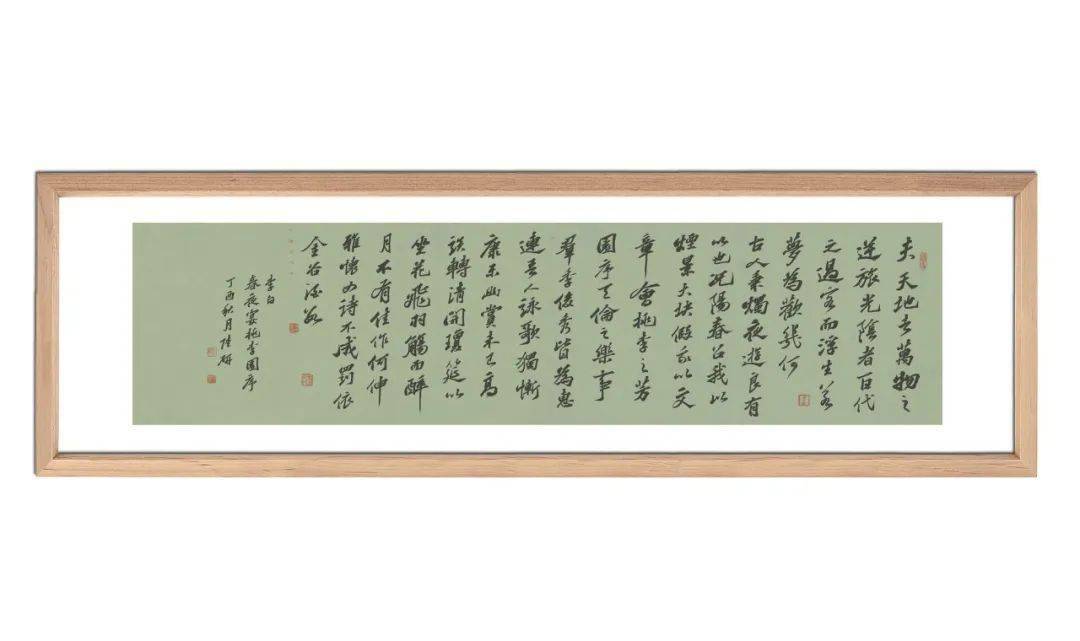 夫天地者萬物之
逆旅光陰者百代
之過客而浮生若
夢為歡幾何
古人秉燭夜遊良有
以也況陽春召我以
煙景大塊假我以文
章會桃李之芳
園序天倫之樂事
羣季俊秀皆為惠
連吾人詠歌獨慚
康樂幽賞未已高
談轉清開瓊筵以
坐花飛羽觴而醉
月不有佳作何伸
雅懷如詩不成罰依
金谷酒數
李白
春夜宴桃李園序
丁酉秋月